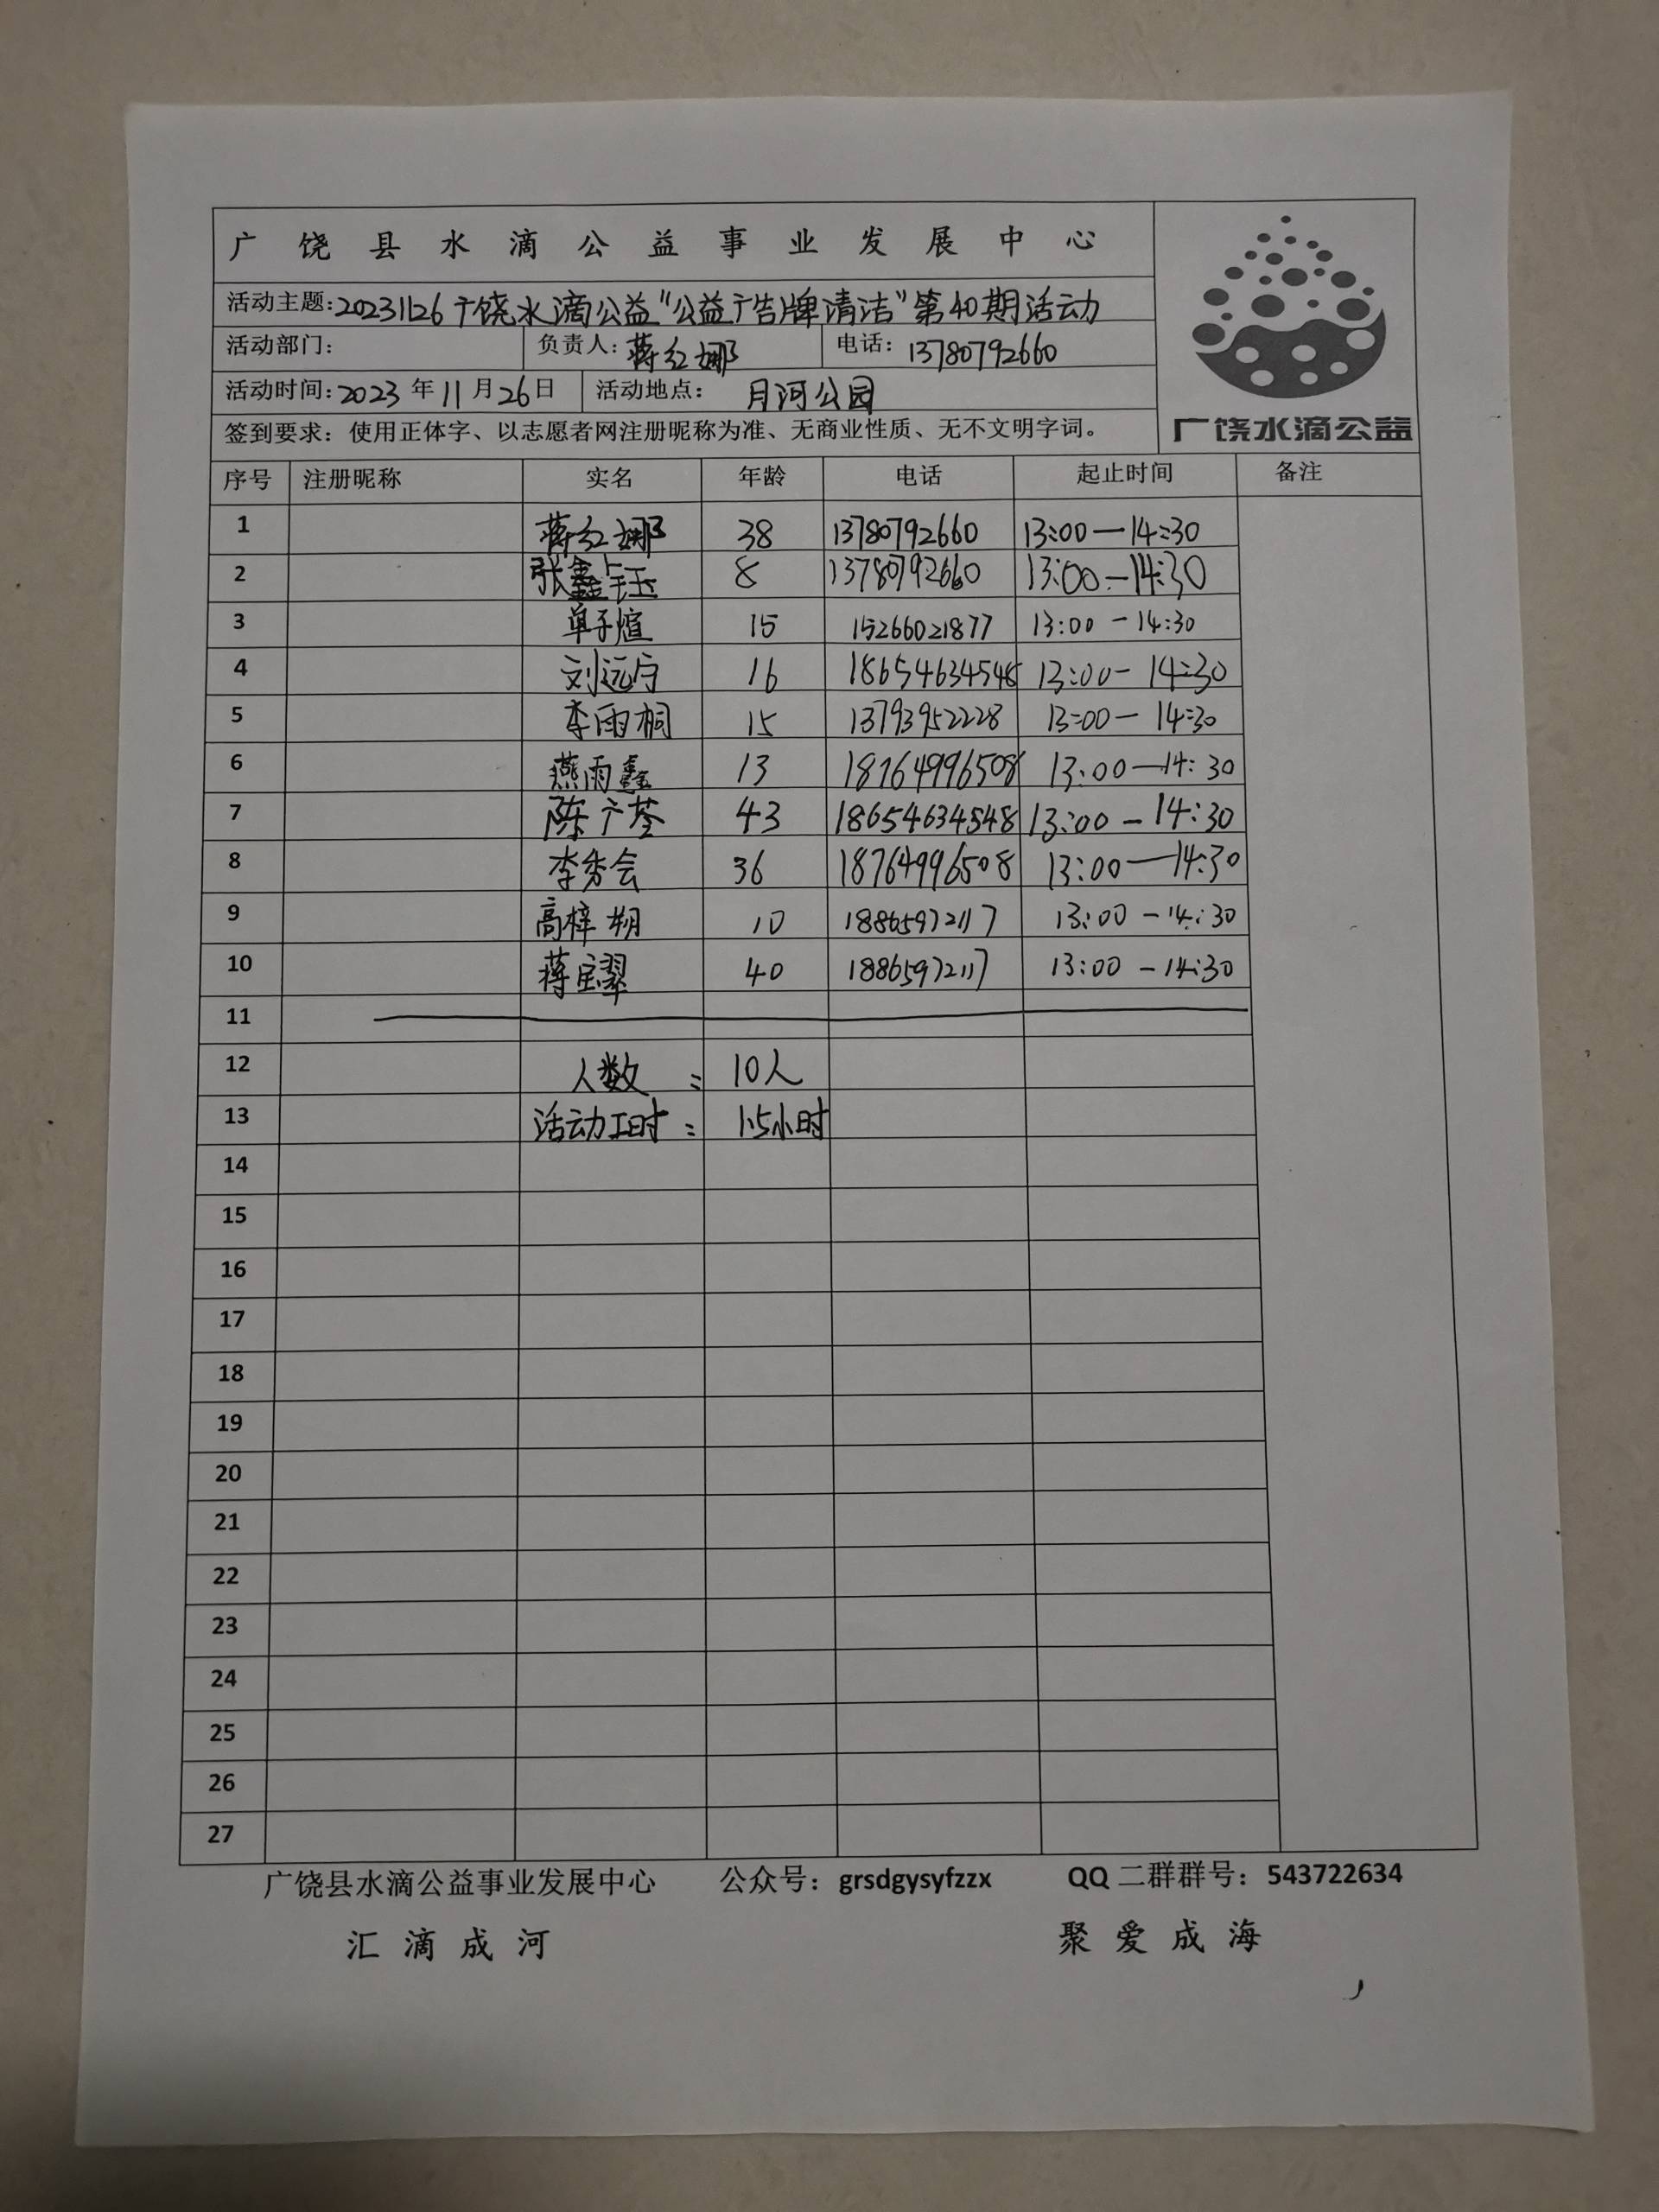 广饶县水滴公益事业发展中心
活动主题:20231126广饶水滴公益"公益广告牌清洁"第40期活动
活动部门: 负责人:蒋红娜 电话:13780792660
活动时间:2023年11月26日 活动地点: 月河公园
广饶水滴公益
签到要求：使用正体字、以志愿者网注册昵称为准、无商业性质、无不文明字词。
序号 注册昵称 实名 年龄 电话 起止时间 备注
1 蒋红娜 38 13780792660 13:00—14:30
2 张鑫钰 8 13780792660 13:00—14:30
3 单子煊 15 15266021877 13:00-14:30
4 刘远宁 16 18654634548 13:00-14:30
5 李雨桐 15 13793952228 13:00-14:30
6 燕雨鑫 13 18764996508 13:00—14:30
7 陈广荃 43 18654634548 13:00-14:30
8 李秀会 36 18764996508 13:00—14:30
9 高梓朔 10 18865972117 13:00-14:30
10 蒋宝翠 40 18865972117 13:00-14:30
11
12 人数: 10人
13 活动工时: 1.5小时
14
15
16
17
18
19
20
21
22
23
24
25
26
27
广饶县水滴公益事业发展中心 公众号：grsdgysyfzzx QQ二群群号：543722634
汇滴成河 聚爱成海